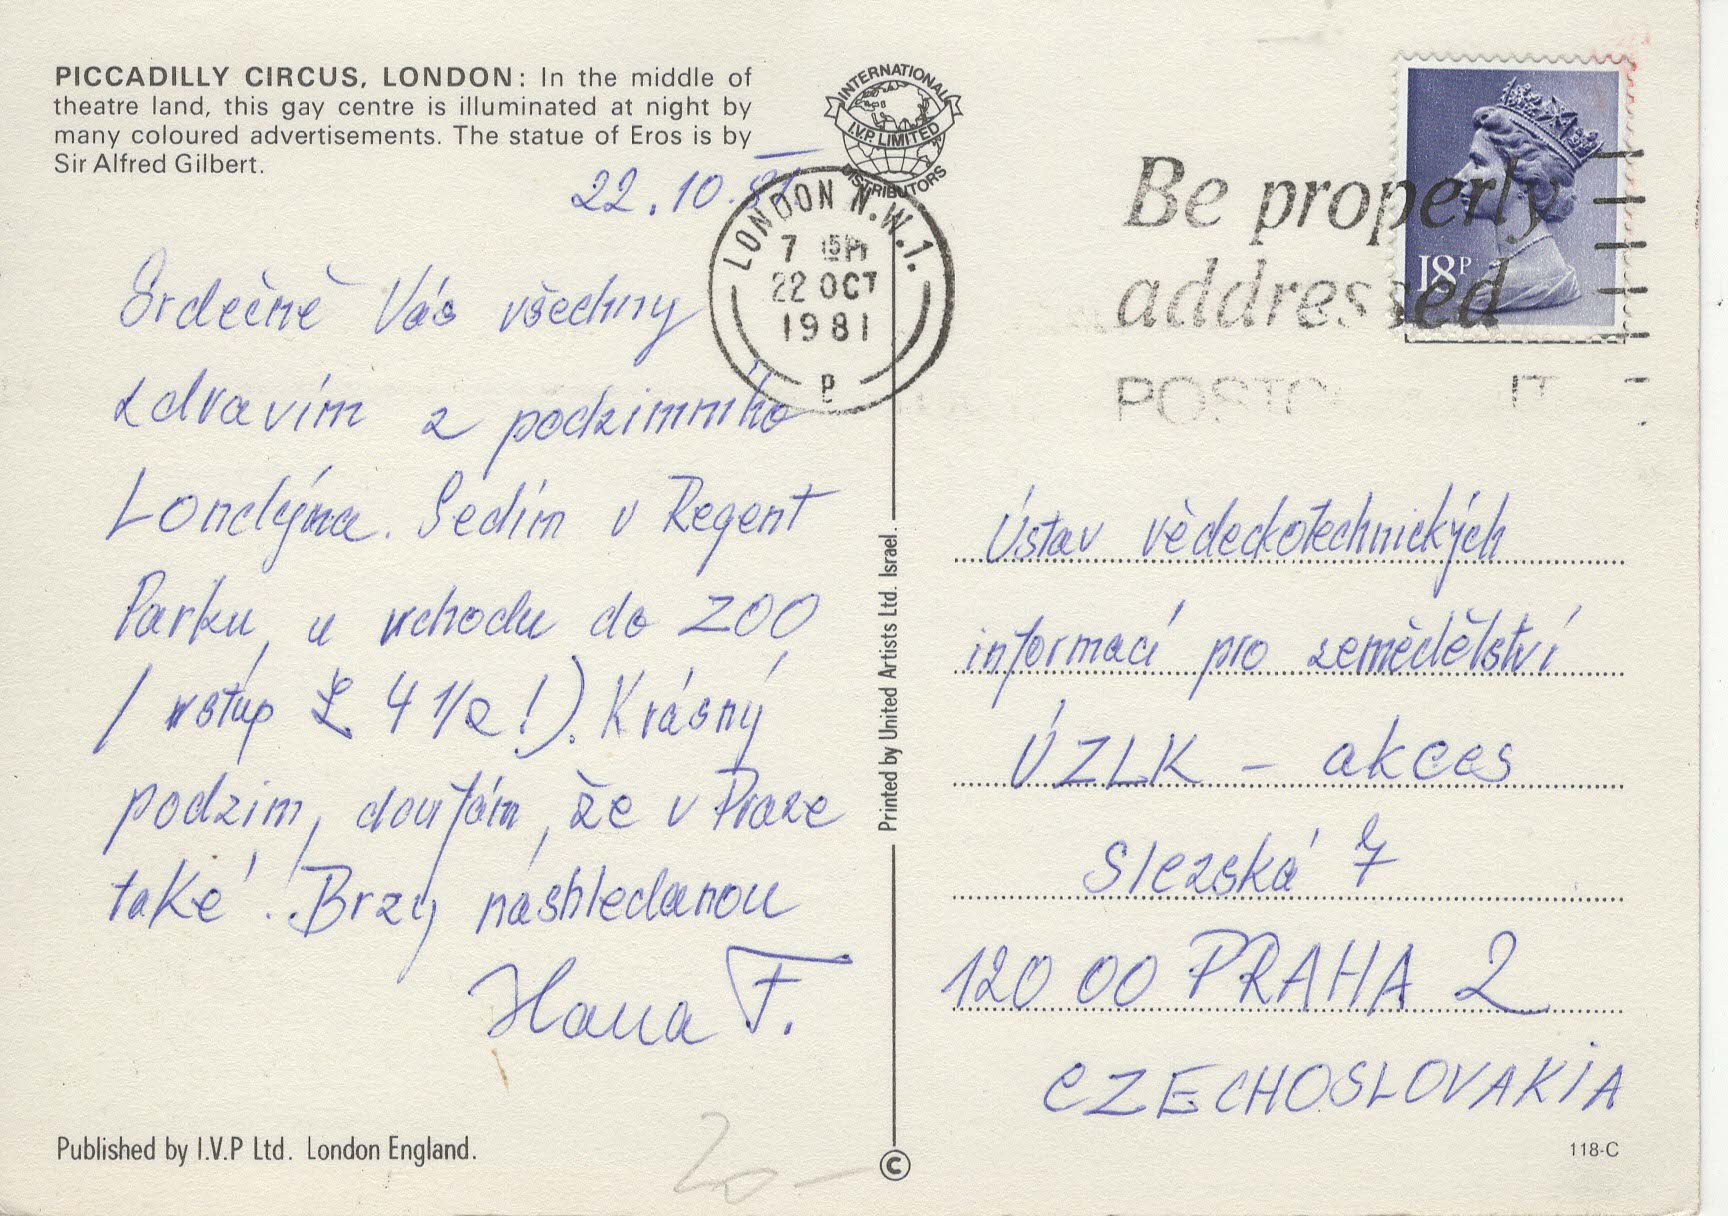 PICCADILLY CIRCUS, LONDON: In the middle of
theatre land, this gay centre is illuminated at night by
many coloured advertisements. The statue of Eros is by
Sir Alfred Gilbert.
22.10.81
Srdečně Vás všechny
zdravím z podzimního
Londýna. Sedím v Regent
Parku, u vchodu do ZOO
/ vstup £ 4 1/2 !). Krásný
podzim, doufám, že v Praze
také! Brzy nashledanou
Hana F.
Published by I.V.P Ltd. London England.
INTERNATIONAL
I.V.P. LIMITED
DISTRIBUTORS
LONDON N.W.1.
7 15PM
22 OCT
1981
P
Printed by United Artists Ltd. Israel.
©
Be properly
addressed
18P
Ústav vědeckotechnických
informací pro zemědělství
ÚZLK - akces
Slezská 7
120 00 PRAHA 2
CZECHOSLOVAKIA
118-C
20-